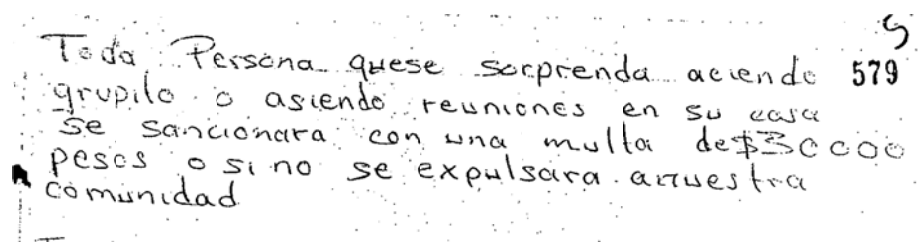 5
Toda Persona quese sorprenda aciendo 579
grupilo o asiendo reuniones en su casa
se sancionara con una multa de $30000
pesos o si no se expulsara
comunidad